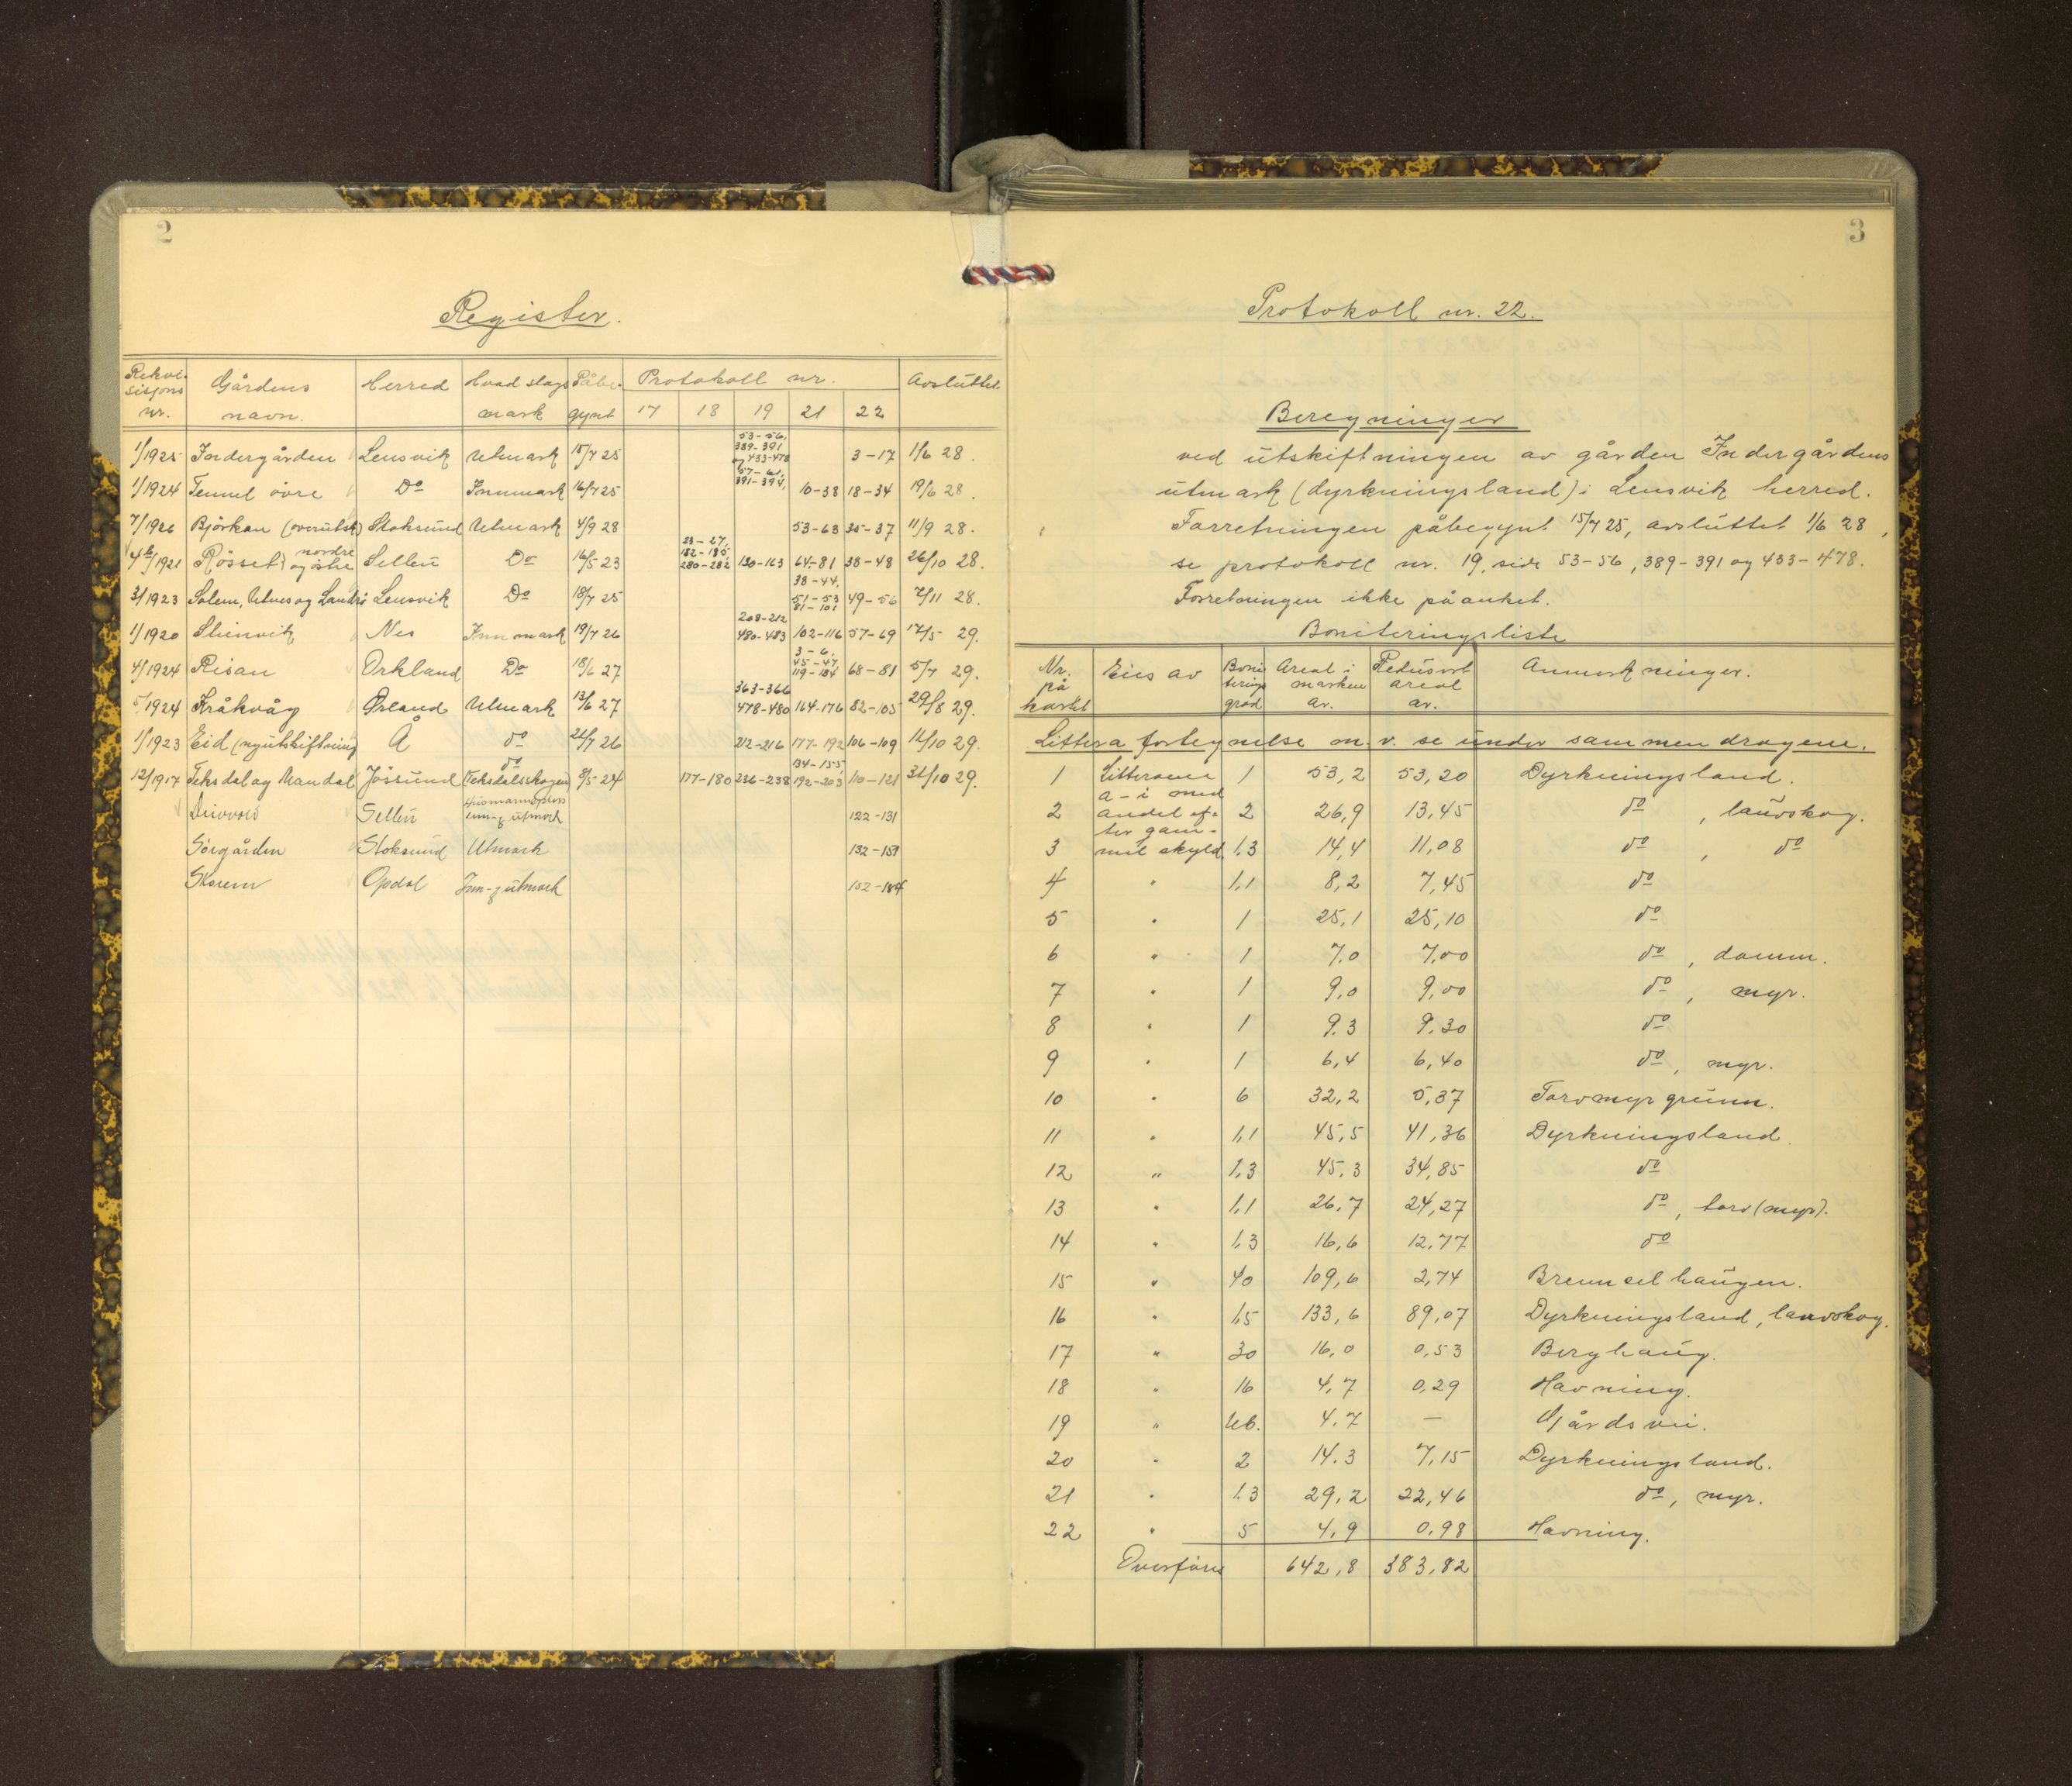 2
Register.
Rekvi- Gårdens Herred Hvad slags Påbe- Protokoll nr. Avsluttet
sisjons
nr. navn. mark gynt 17 18 19 21 22
53-56,
389-391
1/1925 Indergården Lensvik Utmark 15/7 25 og 433-478 3-17 1/6 28.
57-61,
391-394,
1/1924 Temmel övre Do Innmark 16/7 25 10-38 18-34 19/6 28.
7/1926 Björkan (overutsk) Stoksund Utmark 4/9 28 53-63 35-37 11/9 28.
23-27,
nordre 182-185,
/1921 Rösset og östre Selbu Do 16/5 23 280-282 130-163 64-81 38-48 26/10 28.
38-44,
51-53
3/1923 Solem, Utnes og Landrö Lensvik Do 18/7 25 81-101 49-56 7/11 28.
208-212
1/1920 Steinvik Nes Innmark 19/7 26 480-483 102-116 57-69 17/5 29.
3-6,
45-47,
4/1924 Risan Orkland Do 18/6 27 119-134 68-81 5/7 29.
363-366
5/1924 Kråkvåg Örland Utmark 13/6 27 478-480 164-176 82-105 29/8 29.
1/1923 Eid (nyutskiftning Å do 21/7 26 212-216 177-192 106-109 14/10 29.
do 134-155,
12/1917 Teksdal og Mandal Jössund (Teksdalsskogen) 8/5 24 177-180 236-238 192-203 110-121 31/10 29.
Husmannsplass
Selbu inn- & utmark 122-131
Sörgården Stoksund Utmark 132-151
Skorem Opdal Inn- & utmark 152-184
3
Protokoll nr. 22.
Beregninger
ved utskiftningen av gården Indergårdens
utmark (dyrkningsland) i Lensvik herred.
Forretningen påbegynt 15/7 25, avsluttet 1/6 28,
se protokoll nr. 19, side 53-56, 389-391 og 433-478.
Forretningen ikke påanket.
Boniteringsliste
Nr. Eies av Boni Areal i Redusert Anmerkninger.
på terings marken areal
kartet grad ar. ar.
Littera fortegnelse m. v. se under sammendragene.
1 Litteraene 1 53,2 53,20 Dyrkningsland.
a-i med
2 andel ef- 2 26,9 13,45 do, lauvskog.
ter gam-
3 mel skyld 1,3 14,4 11,08 do, do
4 " 1,1 8,2 7,45 do
5 " 1 25,1 25,10 do
6 " 1 7,0 7,00 do, damm.
7 " 1 9,0 9,00 do, myr.
8 " 1 9,3 9,30 do
9 " 1 6,4 6,40 do, myr.
10 " 6 32,2 5,37 Torvmyr grunn.
11 " 1,1 45,5 41,36 Dyrkningsland.
12 " 1,3 45,3 34,85 do
13 " 1,1 26,7 24,27 do, torv (myr).
14 " 1,3 16,6 12,77 do
15 " 40 109,6 2,74 Brennselhaugen.
16 " 1,5 133,6 89,07 Dyrkningsland, lauvskog.
17 " 30 16,0 0,53 Berghaug.
18 " 16 4,7 0,29 Havning.
19 " Ub. 4,7 — Gårdsvei.
20 " 2 14,3 7,15 Dyrkningsland.
21 " 1,3 29,2 22,46 do, myr.
22 " 5 4,9 0,98 Havning.
Overföres 642,8 383,82